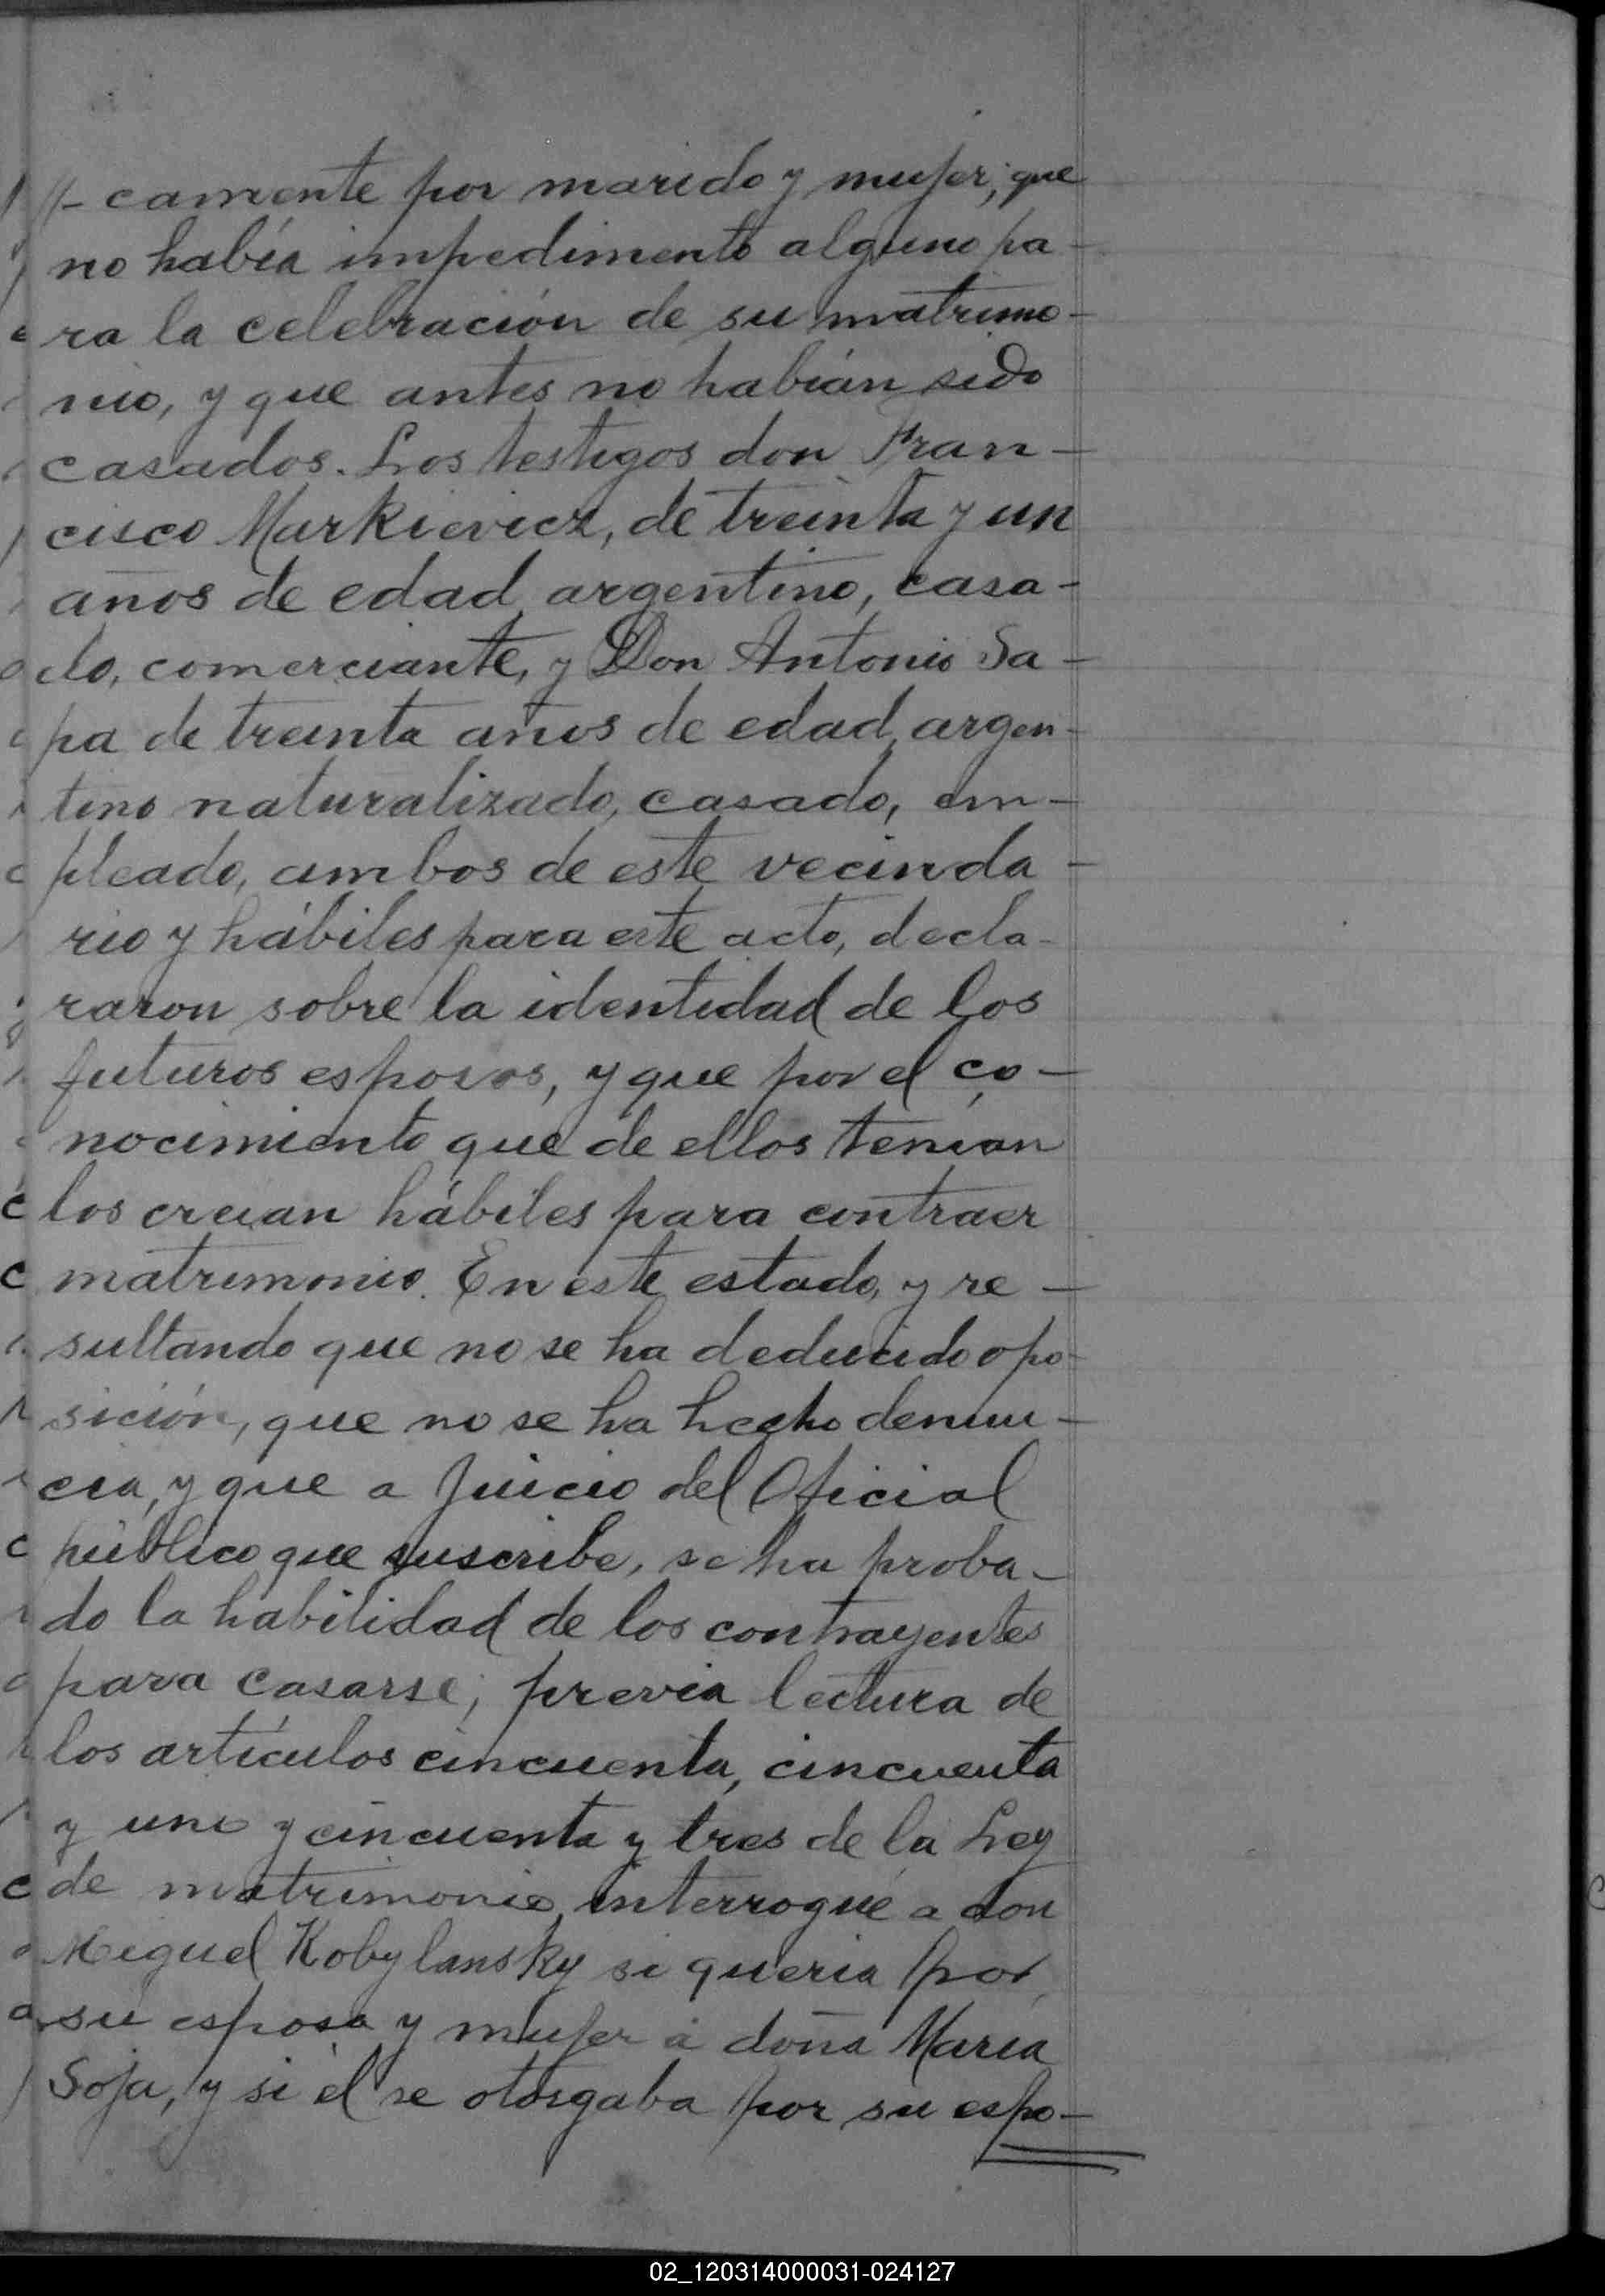 //- camente por marido y mujer; que
no había impedimento alguno pa-
ra la celebración de su matrimo-
nio, y que antes no habían sido
casados. Los testigos don Fran-
cisco Markievicz, de treinta y un
años de edad, argentino, casa-
do, comerciante, y Don Antonio Sa-
pa de treinta años de edad, argen-
tino naturalizado, casado, em-
pleado, ambos de este vecinda-
rio y hábiles para este acto, decla-
raron sobre la identidad de los
futuros esposos, y que por el co-
nocimiento que de ellos tenían
los creían hábiles para contraer
matrimonio. En este estado, y re-
sultando que no se ha deducido opo-
sición, que no se ha hecho denun-
cia, y que a juicio del Oficial
público que suscribe, se ha proba-
do la habilidad de los contrayentes
para casarse; previa lectura de
los artículos cincuenta, cincuenta
y uno y cincuenta y tres de la Ley
de matrimonio, interrogué a don
Miguel Kobylansky si quería por
su esposa y mujer a doña María
Soja, y si él se otorgaba por su espo-
02_120314000031-024127